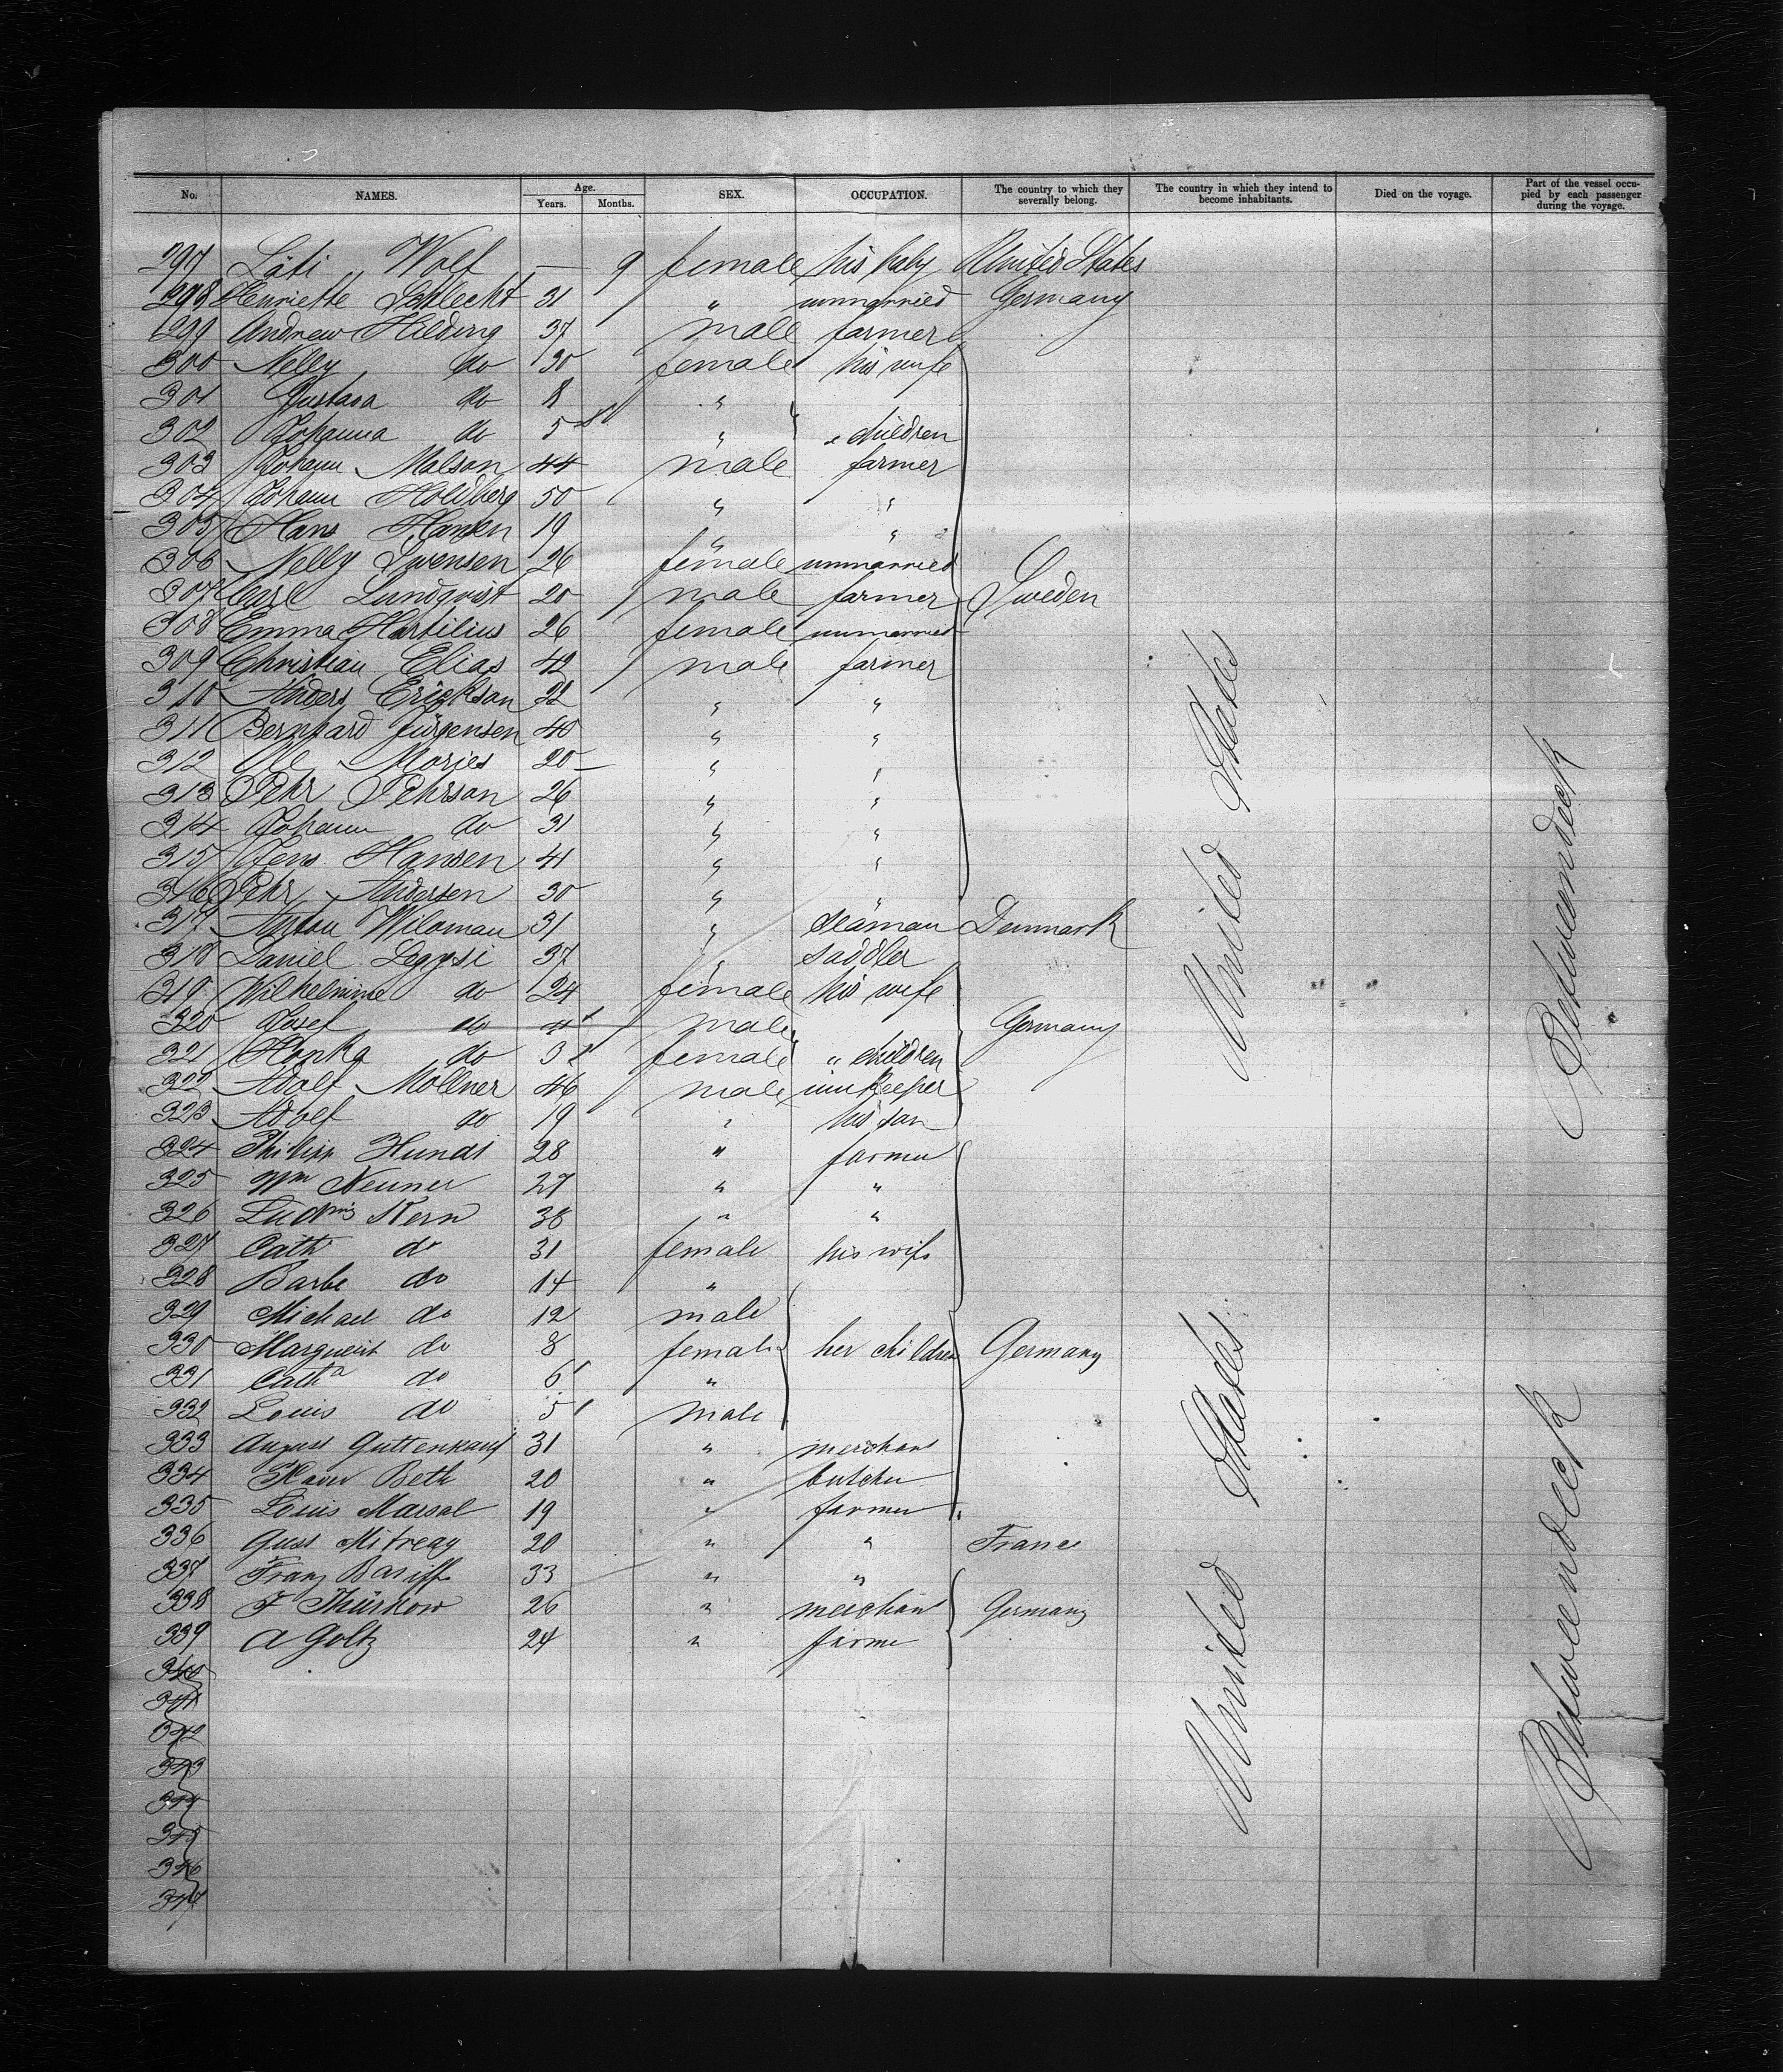 No. NAMES. Age. Years. Months. SEX. OCCUPATION. The country to which they severally belong. The country in which they intend to become inhabitants. Died on the voyage. Part of the vessel occupied by each passenger during the voyage.
297 Läti Wolf — 9 female his baby United States
298 Henriette Schlecht 31 " unmarried Germany
299 Andrew Hilding 37 male farmer
300 Nelly do 30 female his wife
301 Gustava do 8 "
302 Johanna do 5 " " children
303 Johann Malson 44 male farmer
304 Johann Holdberg 50 " "
305 Hans Hansen 19 " "
306 Nelly Swensen 26 female unmarried
307 Carl Lundqvist 20 male farmer Sweden
308 Emma Hertilius 26 female unmarried
309 Christian Elias 42 male farmer
310 Anders Erickson 22 " "
311 Bernhard Jürgensen 40 " "
312 Ole Morjes 20 " "
313 Pehr Pehrson 26 " "
314 Johann do 31 " "
315 Jens Hansen 41 " "
316 Pehr Andersen 30 " "
317 Anton Wiloman 31 " seaman Denmark
318 Daniel Legysi 37 " saddler
319 Wilhelmine do 24 female his wife
320 Josef do 4 male Germany
321 Honka do 3 female " children
322 Adolf Möllner 46 male innkeeper
323 Adolf do 19 " his son
324 Philipp Hundt 28 " farmer
325 Wm Neuner 27 " "
326 Ludwig Kern 38 " "
327 Cath do 31 female his wife
328 Barbe do 14 "
329 Michael do 12 male
330 Marguerit do 8 female her children Germany
331 Catha do 6 "
332 Louis do 5 male
333 August Guttenkauf 31 " merchant
334 Xaver Beth 20 " butcher
335 Louis Marsal 19 " farmer
336 Gust Mitreay 20 " " France
337 Franz Bariff 33 " "
338 F Thürkow 26 " merchant Germany
339 A Goltz 24 " farmer
340
341
342
343
344
345
346
347
United States
United States
Betweendeck
Betweendeck